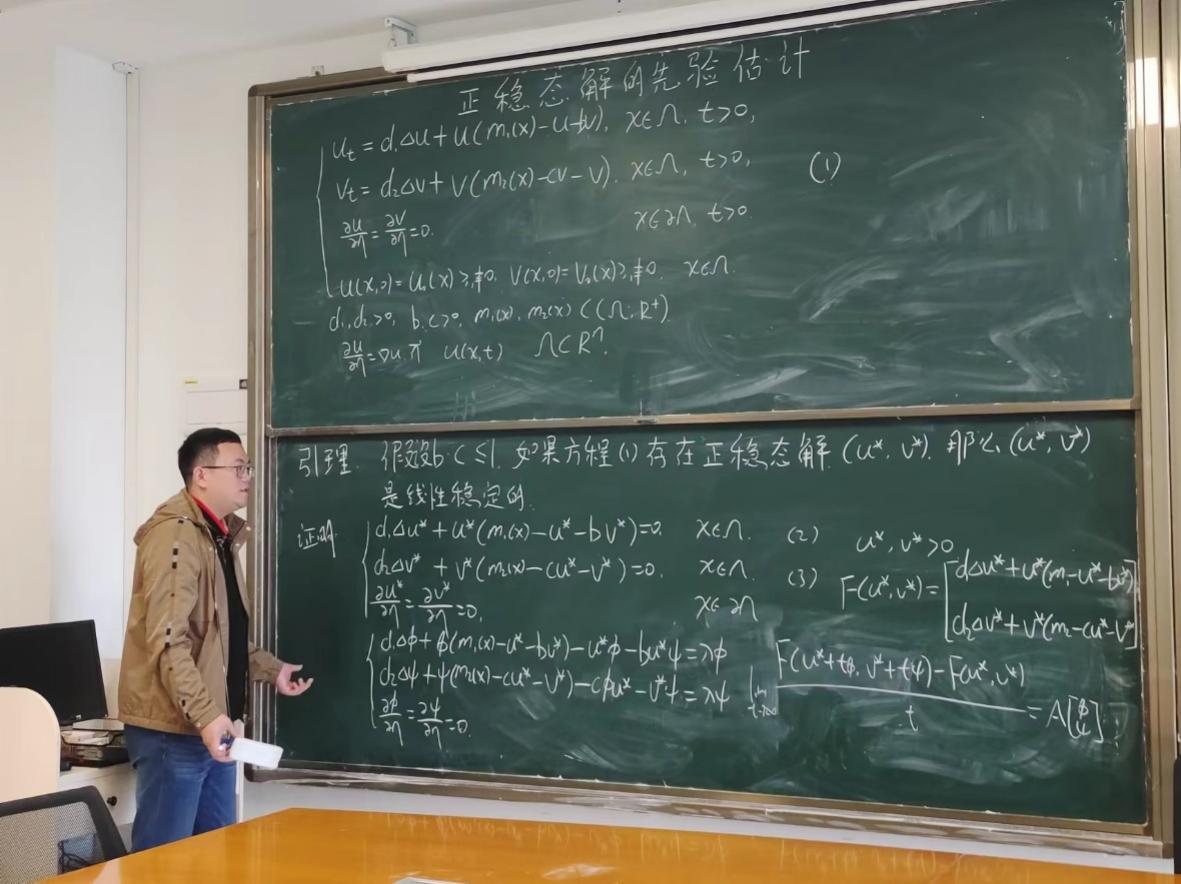 正稳态解的先验估计
u_t = d₁Δu + u(m₁(x)-u-bv), x∈Ω, t>0,
v_t = d₂Δv + v(m₂(x)-cv-v). x∈Ω, t>0, (1)
∂u/∂η = ∂v/∂η = 0. x∈∂Ω, t>0
u(x,0)=u₀(x)≥,≢0. v(x,0)=v₀(x)≥,≢0. x∈Ω.
d₁,d₂>0, b.c>0, m₁(x), m₂(x) C(Ω; R⁺)
∂u/∂η = ∇u·n⃗ u(x,t) Ω⊂Rⁿ.
引理. 假设b·c≤1. 如果方程(1)存在正稳态解(u*, v*). 那么(u*, v*)
是线性稳定的.
证明 d₁Δu* + u*(m₁(x)-u*-bv*)=0. x∈Ω. (2) u*, v*>0
d₂Δv* + v*(m₂(x)-cu*-v*)=0. x∈Ω. (3)
∂u*/∂η = ∂v*/∂η = 0, x∈∂Ω
F(u*,v*) = [d₁Δu*+u*(m₁-u*-bv*)
d₂Δv*+v*(m₂-cu*-v*)]
d₁Δϕ+ϕ(m₁(x)-u*-bv*)-u*ϕ-bu*ψ=λϕ
d₂Δψ+ψ(m₂(x)-cu*-v*)-cϕu*-v*ψ=λψ
∂ϕ/∂η = ∂ψ/∂η = 0.
lim F(u*+tϕ, v*+tψ)-F(u*,v*) / t = A[ϕ ψ].